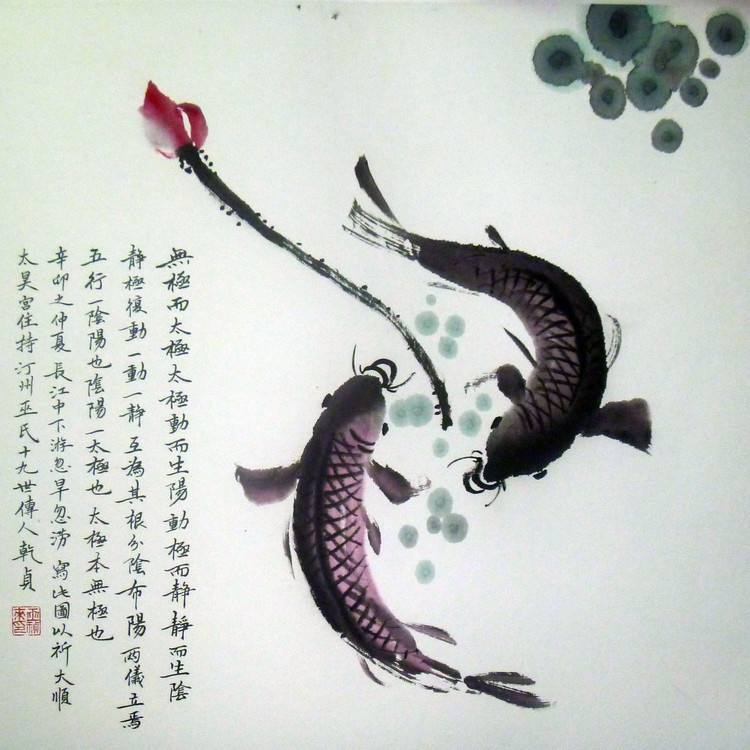 無極而太極太極動而生陽動極而静静而生陰
静極復動一動一静互為其根分陰布陽兩儀立焉
五行一陰陽也陰陽一太極也太極本無極也
辛卯之仲夏長江中下游忽旱忽涝寫此圖以祈大順
太昊宫住持汀州巫氏十九世傳人乾貞